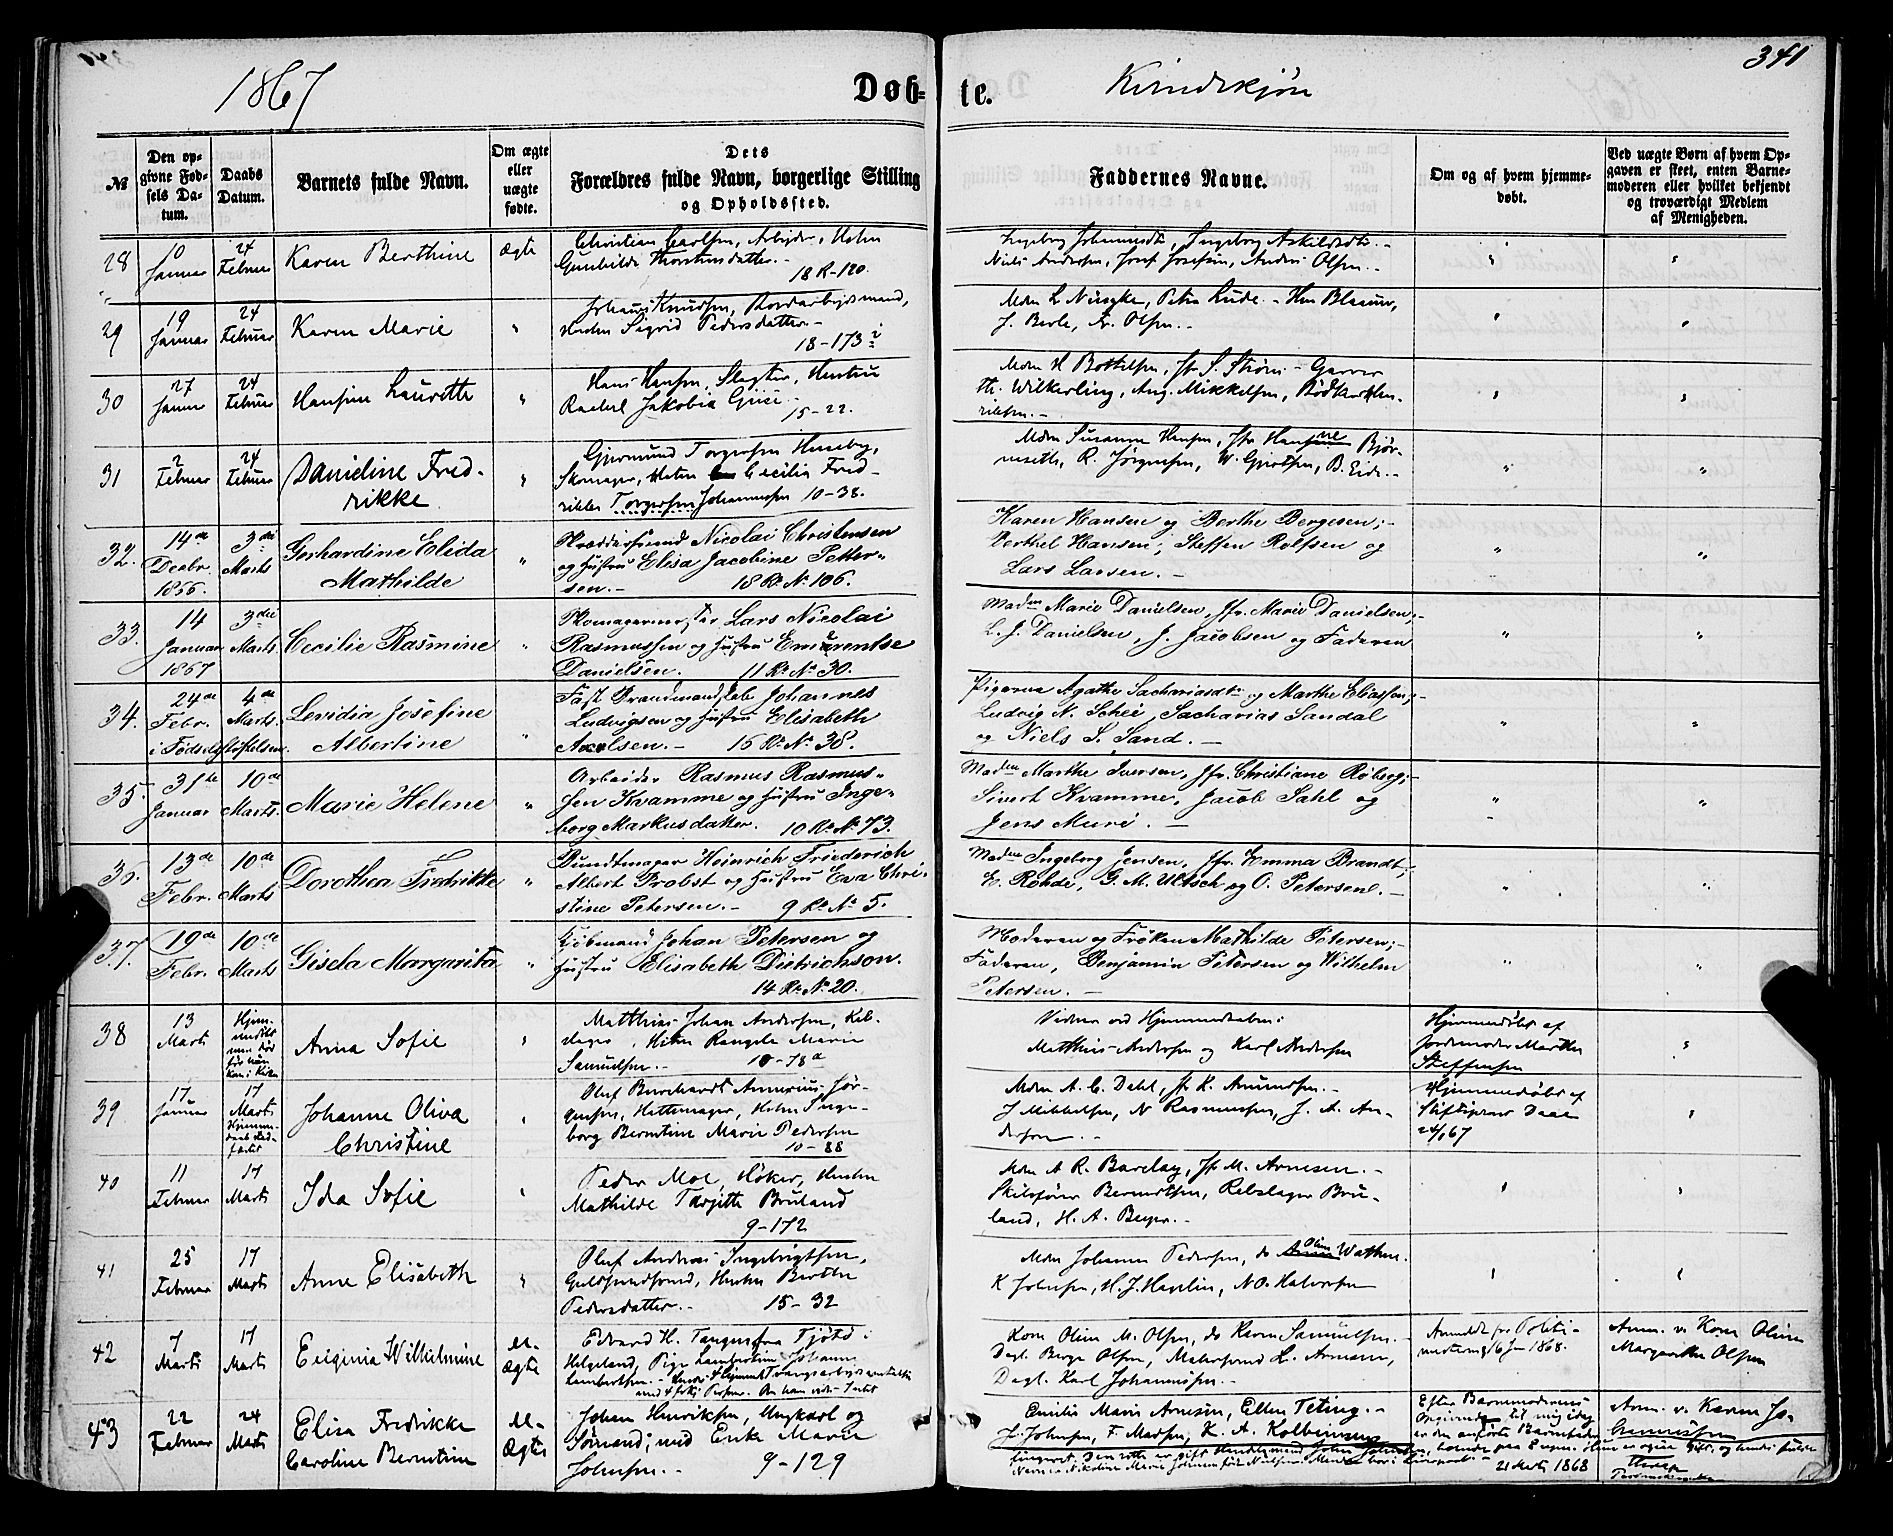 341
1867
Døb-
te.
Kvindekjøn
№
Den op-
givne Fød-
sels Da-
tum.
Daabs
Datum.
Barnets fulde Navn.
Om ægte
eller
uægte
fødte.
Dets
Forældres fulde Navn, borgerlige Stilling
og Opholdssted.
Faddernes Navne.
Om og af hvem hjemme-
døbt.
Ved uægte Børn af hvem Op-
gaven er skeet, enten Barne-
moderen eller hvilket bekjendt
og troværdigt Medlem
af Menigheden.
28
10
Januar
24
Februar
Karen Berthine
Ægte
Christian Carlsen, Arbejder, Hustru
Gunhilde Thorstensdatter.
18 R-120.
Ingeborg Johannesdtr, Ingeborg Askildsdtr. -
Niels Andersen, Josef Josefsen, Anders Olsen. -
29
19
Januar
24
Februar
Karen Marie
Knudsen,
Hustru Sigrid Pedersdatter. -
18-173
J. Berle, Fr. Olsen. -
30
27
Januar
24
Februar
Hansine Laurette
Hans Hansen, Slagter, Hustru
Rachel Jakobia
15-22.
Wilkerling, Aug. Mikkelsen,
31
2
Februar
24
Februar
Danieline Fred-
rikke
Gjermund Torgersen Huseby,
Skomager, Hustru Cecilia Fred-
rikke Torgersen Johannesen 10-38.
Mdm Susanne Hansen, Jfr. Hansine Bjør-
neseth, R. Jørgensen, W. Gjertsen, B. Eide. -
32.
14de
Decbr.
1866.
3die
Marts
Gerhardine Elida
Mathilde
Skræddersvend Nicolai Christensen
og Hustru Elisa Jacobine Petter-
sen. - 18 R. N. 106.
Karen Hansen og Berthe Bergesen; -
Berthel Hansen, Steffen Rolfsen og
Lars Larsen. -
33.
14
Januar
1867
3die
Marts
Cecilie Rasmine
Skomagermester Lars Nicolai
Rasmussen og Hustru Emerentse
Danielsen. 11 R. N. 30.
Madm Marie Danielsen, Jfr. Marie Danielsen; -
L. J. Danielsen, J. Jacobsen og Faderen
34.
24de
Febr.
i Fødselsstiftelsen.
4de
Marts
Levidia Josefine
Albertine
Fast Brandmandskab Johannes
Ludvigsen og Hustru Elisabeth
Axelsen. - 16 R. N. 38.
Pigerne Agathe Sachariasdtr og Marthe Eliassen; -
Ludvig N. Schei, Sacharias Sandal
og Niels S. Sand. -
35.
31te
Januar
10de
Marts.
Marie Helene
Arbeider Rasmus Rasmus-
sen Kvamme og Hustru Inge-
borg Markusdatter. 10 R. N. 73.
Madm Marthe Iversen, Jfr. Christiane Røberg; -
Sivert Kvamme, Jacob Sahl og
Jens Muri. -
36.
13de
Febr.
10de
Marts
Dorothea Fredrikke
Bundtmager Heinrich Friederich
Albert Probst og Hustru Eva Chri-
stine Petersen. - 9 R. N. 5.
Madm Ingeborg Jensen, Jfr. Emma Brandt; -
E. Rohde, G. M. Ultsch og O. Petersen. -
37.
19de
Febr.
10de
Marts
Gisela Margarita
Kjøbmand Johan Petersen og
Hustru Elisabeth Dietrichson.
14 R. N. 20.
Moderen og Frøken Mathilde Petersen; -
Faderen, Benjamin Petersen og Wilhelm
Petersen. -
38
13
Marts
Anna Sofie
Matthias Johan Andersen, Reb-
slager, Hustru Rangela Marie
Samuelsen. - 10-78a
Vidner ved Hjemmedaaben:
Matthias Andersen og Karl Andersen
Hjemmedøbt af
Jordemoder Marthe
Steffensen
39
17
Januar
17
Marts
Johanne Oliva
Christine
Oluf Burchardt Annanius Jør-
gensen, Hattemager, Hustru Inge-
borg Berntine Marie Pedersen
10-88
Mdm A. C. Dahl, Jfr K. Amundsen. -
J Mikkelsen, N Rasmussen, J. A. An-
dersen. -
Hjemmedøbt af
Stiftsprovst Daae
24/1 67
40
11
Februar
17
Marts
Ida Sofie
Peder Moe, Høker, Hustru
Mathilde Bruland
9-172
Mdm A R. Barclay, Jfr M. Arnesen. -
Skibsfører Berentsen, Rebslager Bru-
land, H. A. Beyer. -
41
25
Februar
17
Marts
Anne Elisabeth
Oluf Andreas Ingebrigtsen,
Guldsmedsvend, Hustru Berthe
Pedersdatter. - 15-32
Mdm Johanna Pedersen, do Oline Wathne.
K Johnsen, H. J. Havelin, N O. Halvorsen
42
7
Marts
17
Marts
Eugenia Wilhelmine
U-
Ægte
Edvard H. Tangen fra Tjøtø i
Helgeland, Pige Lambertine Johanne
Lambertsen. -
Kone Oline M. Olsen, do Karen Samuelsen. -
Dagl. Berge Olsen, Malersvend L. Arnesen,
Dagl. Karl Johannesen. -
Anmeldt for Politi-
mesteren 16 Jan 1868.
Anm. v. Kone Oline
Margrethe Olsen
43
22
Februar
24
Marts
Elisa Fredrikke
Caroline Berntine
U-
Ægte
Johan Henriksen, Ungkarl og
Sømand; med Enke Maren
Johnsen. - 9-129
Emilie Marie Arnesen, Ellen Teting. -
J. Johnsen, F. Madsen, K. A. Kolbeinsen
Efter Barnemoderens
Opgivende til mig idag
er den anførte Barnefader
21 Marts 1868
Anm. v. Karen Jo-